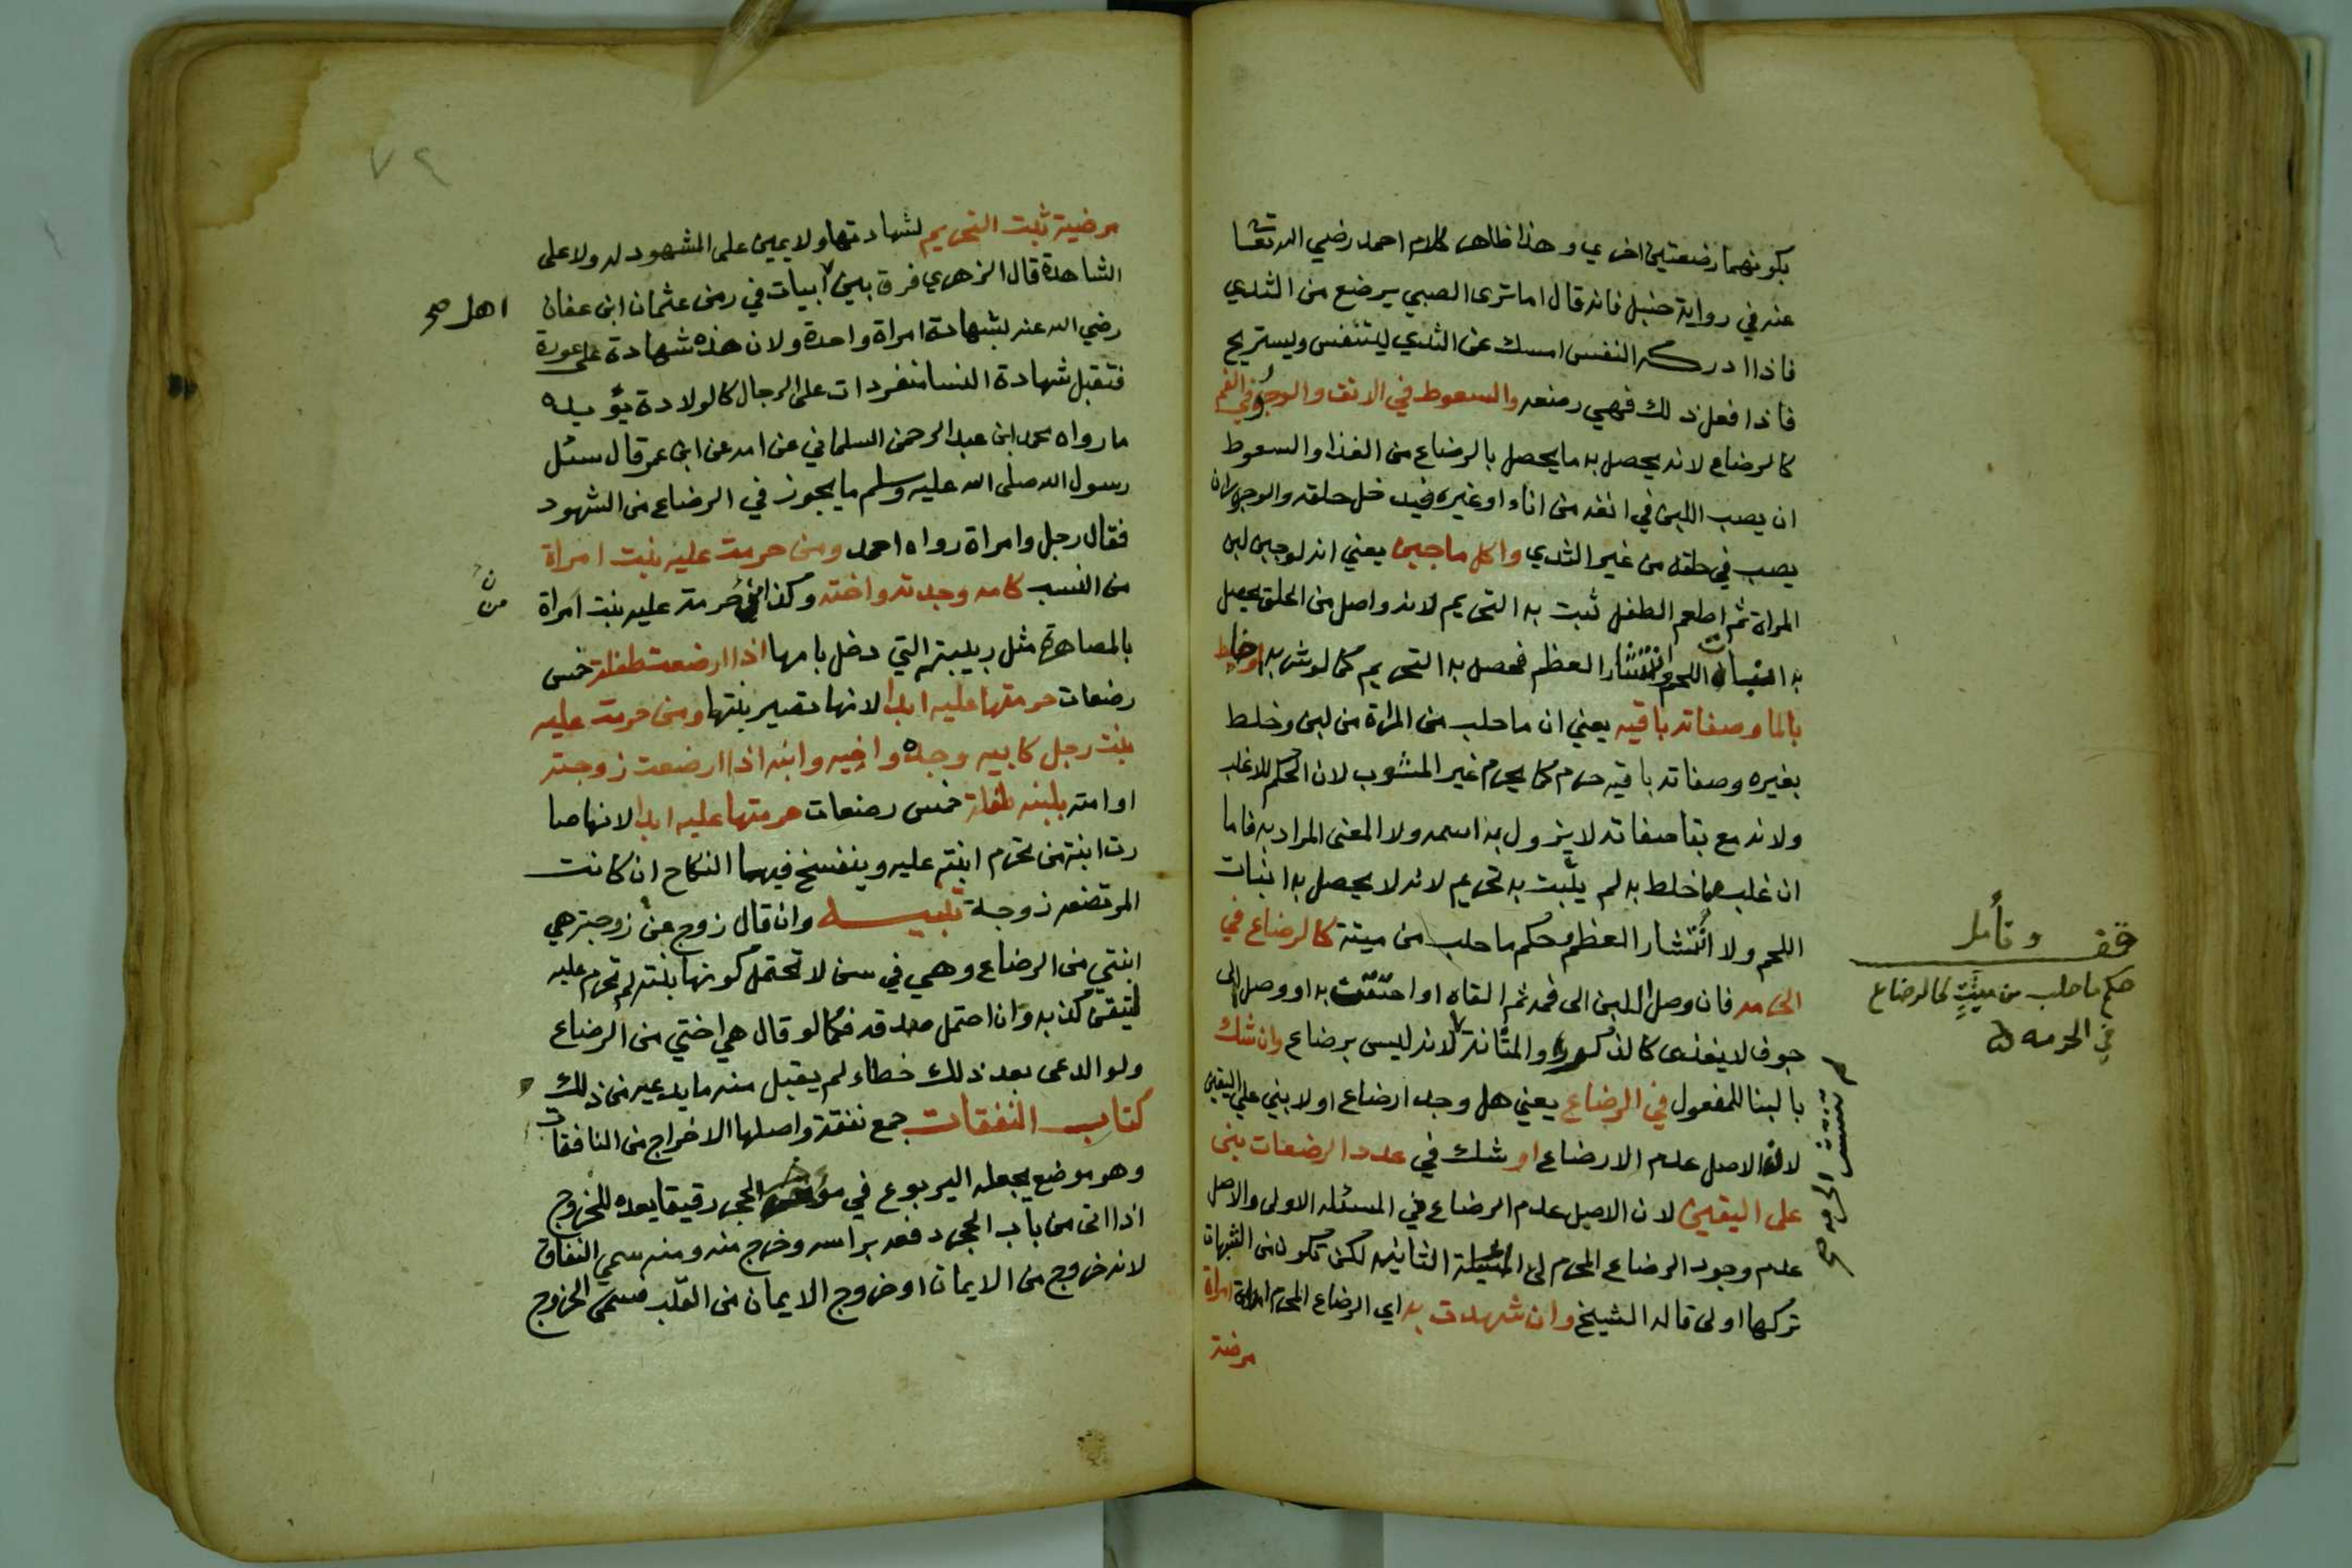 بكونهما رضعتين اخري وهذا ظاهر كلام احمد رضي الله تعا
عنه في رواية حنبل فانه قال اما ترى الصبي يرضع من الثدي
فاذا ادركه النفس امسك عن الثدي ليتنفس ويستريح
فاذا فعل ذلك فهي رضعه والسعوط في الانف والوجور في الفم
كالرضاع لانه يحصل به ما يحصل بالرضاع من الغذا والسعوط
ان يصب اللبن في انفه من اناء او غيره فيدخل حلقه والوجور ان
يصب في حلقه من غير الثدي واكل ما جبن يعني انه لو جبن لبن
المراة ثم اطعم الطفل ثبت به التحريم لانه واصل من الحلق يحصل
به انبات اللحم وانتشار العظم فحصل به التحريم كما لو شربه او خلط
بالما وصفاته باقيه يعني ان ما حلب من المراة من لبن وخلط
بغيره وصفاته باقيه حرم كما يحرم غير المشوب لان الحكم للاغلب
ولانه مع بقا صفاته لا يزول به اسمه ولا المعنى المراد به فاما
ان غلب ما خلط به لم يثبت به تحريم لانه لا يحصل به انبات
اللحم ولا انتشار العظم وحكم ما حلب من ميتة كالرضاع في
الحرمه فان وصل اللبن الى فمه ثم القاه او احتقن به او وصل الى
جوف لا يغذى كالذكر والمثانة لانه ليس برضاع وان شك
بالبنا للمفعول في الرضاع يعني هل وجد ارضاع اولا بني على اليقين
لان الاصل عدم الارضاع او شك في عدد الرضعات بنى
على اليقين لان الاصل عدم الرضاع في المسئله الاولى والاصل
عدم وجود الرضاع المحرم في المسئلة الثانيه لكن تكون من الشبهات
تركها اولى قاله الشيخ وان شهدت به اي الرضاع المحرم امراة
مرضية
قف وتأمل
حكم ما حلب من ميتت كالرضاع
في الحرمه
م تنتشر الحرمة صح
٧٤
مرضية ثبت التحريم لشهادتها ولا يمين على المشهود له ولا على
الشاهدة قال الزهري فرق بين ابيات في زمن عثمان ابن عفان
اهل صح
رضي الله عنه بشهادة امراة واحدة ولان هذه شهادة على عورة
فتقبل شهادة النسا منفردات على الرجال كالولادة يؤيده
ما رواه محمد ابن عبد الرحمن السلماني عن امه عن ابن عمر قال سئل
رسول الله صلى الله عليه وسلم ما يجوز في الرضاع من الشهود
فقال رجل وامراة رواه احمد ومن حرمت عليه بنت امراة
من النسب كامه وجدته واخته وكذا من حرمت عليه بنت امراة
بالمصاهرة مثل ربيبته التي دخل بامها اذا ارضعت طفلة خمس
رضعات حرمتها عليه ابدا لانها تصير بنتها ومن حرمت عليه
بنت رجل كابيه وجده واخيه وابنه اذا ارضعت زوجته
او امته بلبنه طفلة خمس رضعات حرمتها عليه ابدا لانها صا
رت ابنة من تحرم ابنته عليه وينفسخ فيهما النكاح ان كانت
المرتضعه زوجة تنبيه وان قال زوج عن زوجته هي
ابنتي من الرضاع وهي في سن لا تحتمل كونها بنته لم تحرم عليه
لتيقن كذبه وان احتمل صدقه فكما لو قال هي اختي من الرضاع
ولو ادعى بعد ذلك خطاء لم يقبل منه ما يدعيه من ذلك
كتاب النفقات جمع نفقة واصلها الاخراج من النافقا
وهو موضع يجعله اليربوع في مؤخر الحجر رقيقا يعده للخروج
اذا اتى من باب الحجر دفعه براسه وخرج منه ومنه سمي النفاق
لانه خروج من الايمان او خروج الايمان من القلب فسمى الخروج